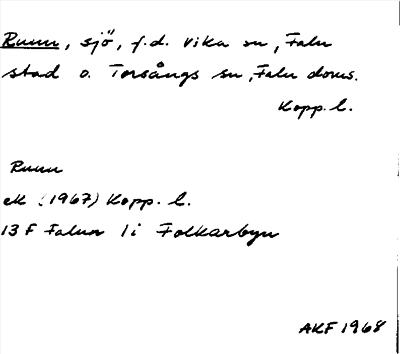 Runn, sjö, f.d. Vika sn, Falu
stad o. Torsångs sn, Falu doms.
Kopp. l.
Runn
ek (1967) Kopp. l.
13 F Falun 1i Folkarbyn
AKF 1968